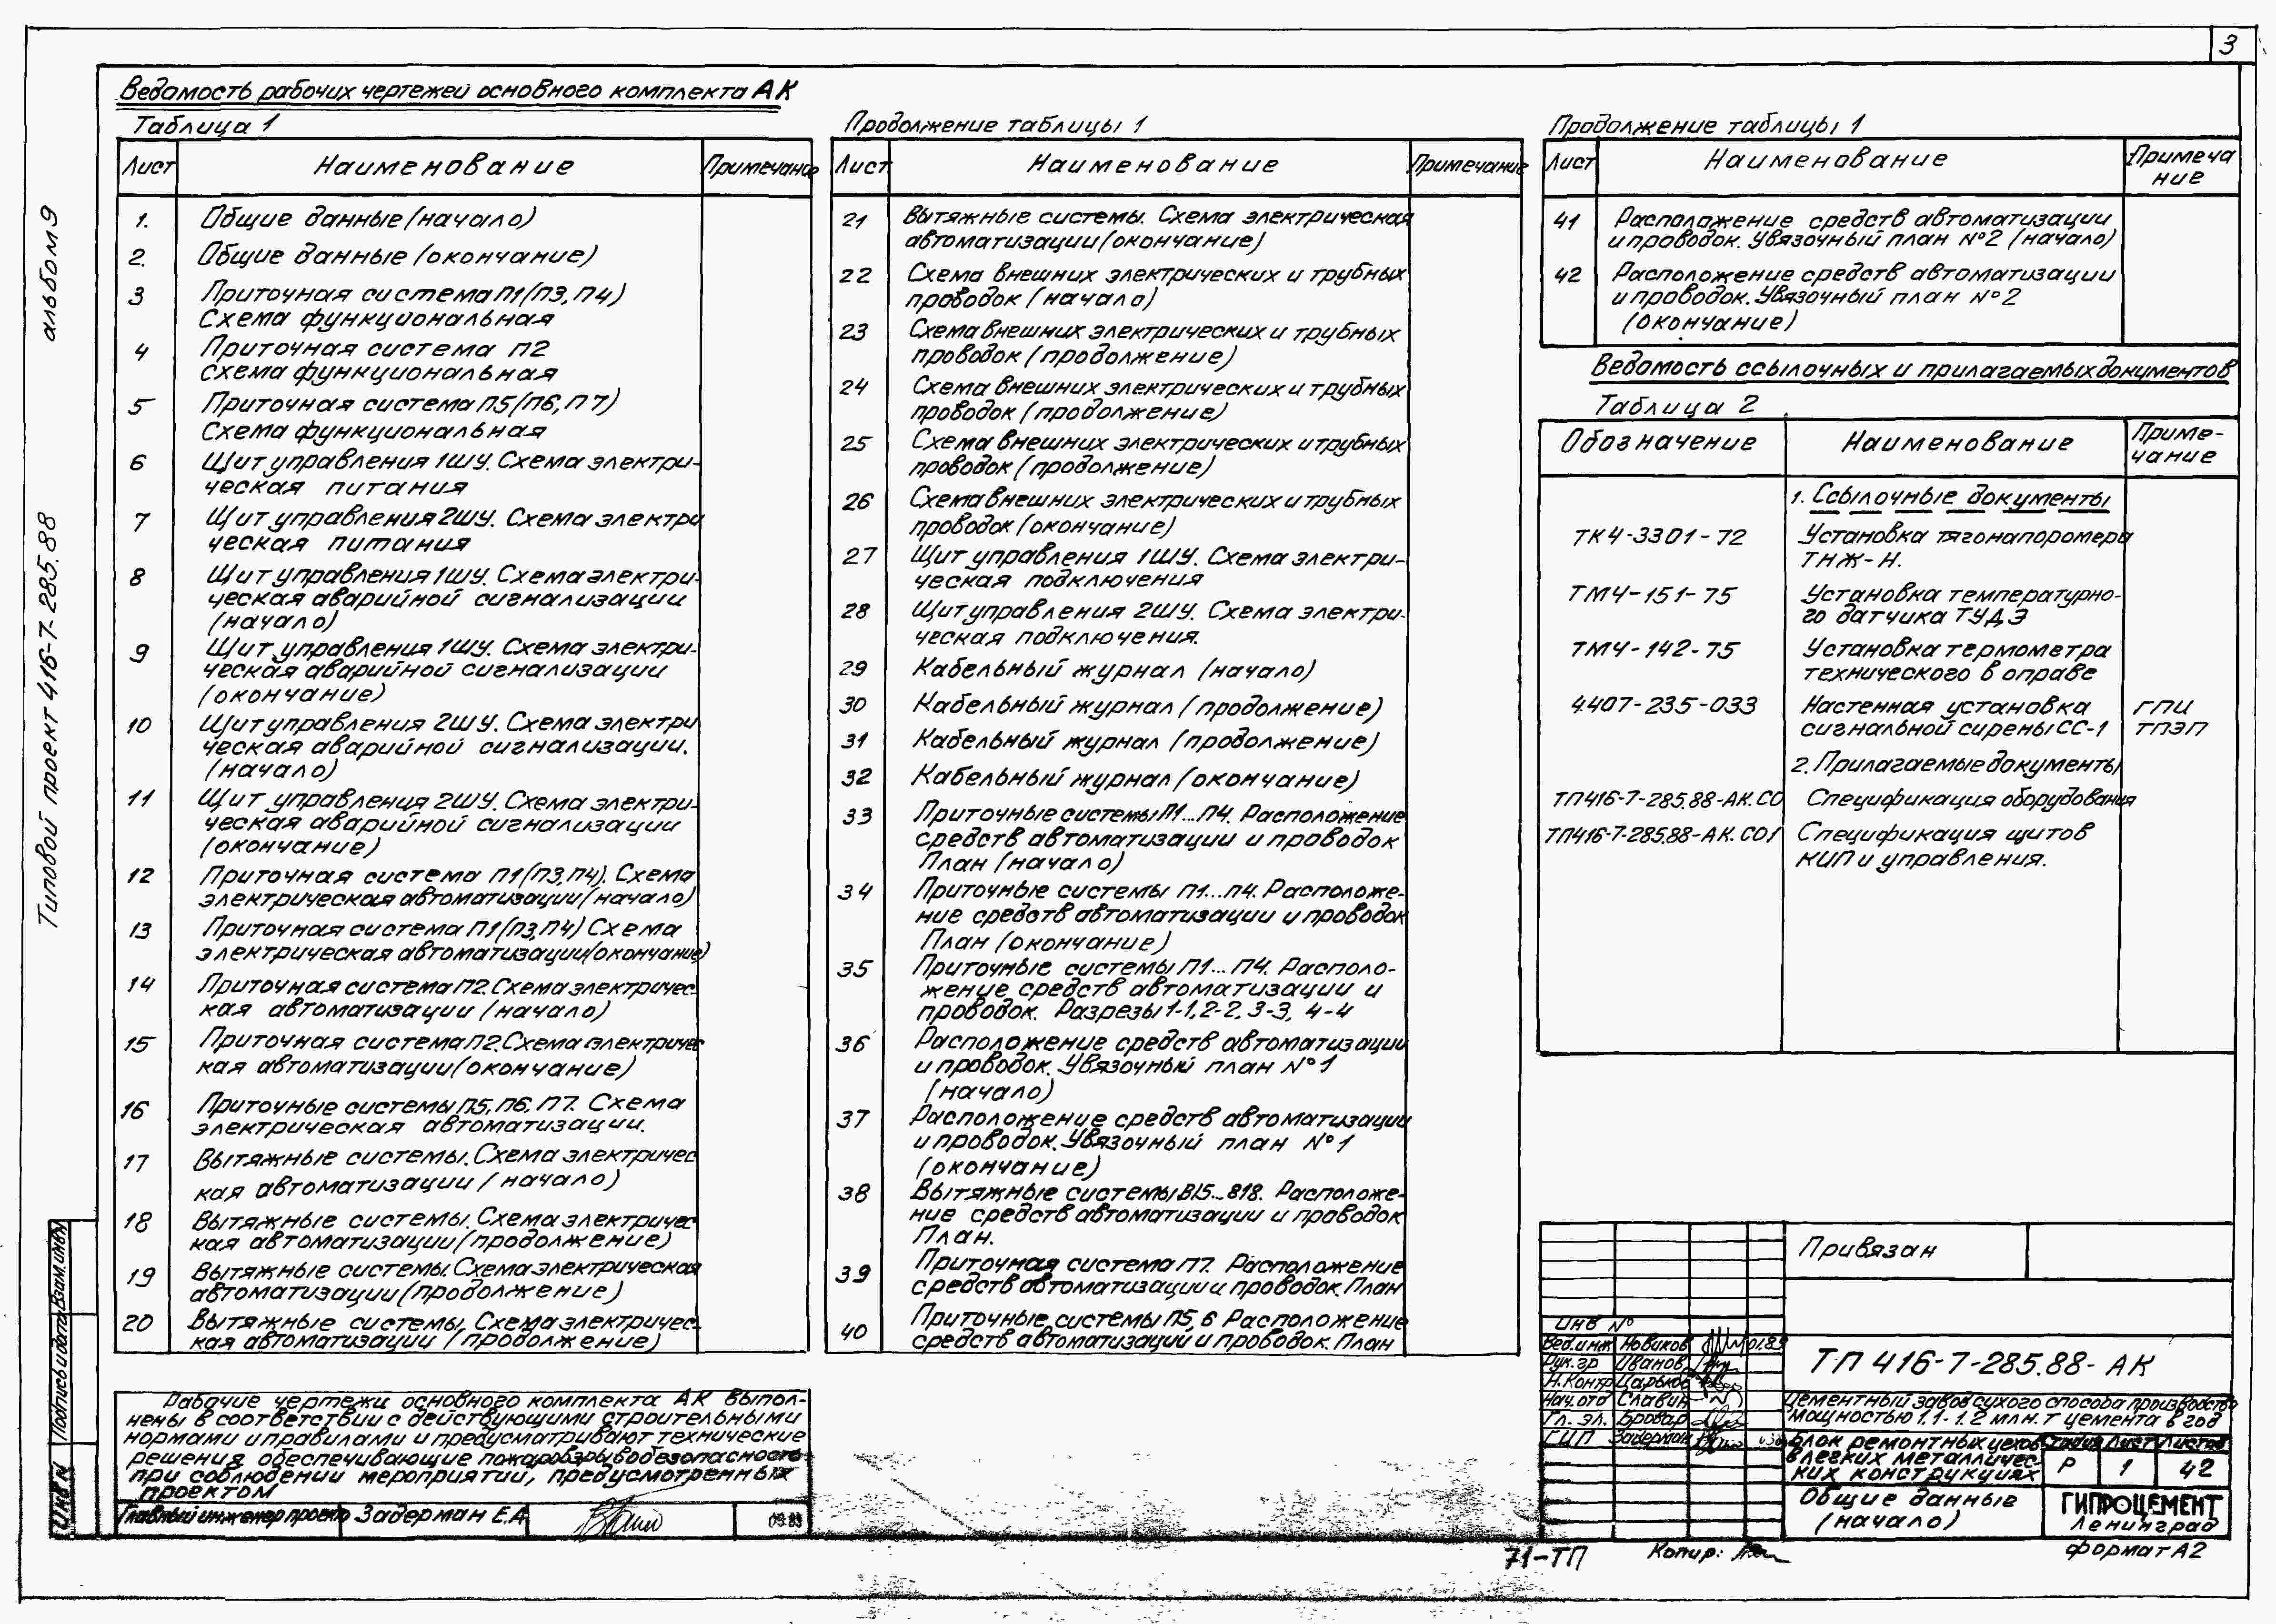 3
альбом 9
Типовой проект 416-7-285.88
Ведомость рабочих чертежей основного комплекта АК
Таблица 1
Лист Наименование Примечание
1. Общие данные (начало)
2. Общие данные (окончание)
3 Приточная система П1(П3,П4)
Схема функциональная
4 Приточная система П2
схема функциональная
5 Приточная система П5(П6,П7)
Схема функциональная
6 Щит управления 1ШУ. Схема электри-
ческая питания
7 Щит управления 2ШУ. Схема электри
ческая питания
8 Щит управления 1ШУ. Схема электри-
ческая аварийной сигнализации
(начало)
9 Щит управления 1ШУ. Схема электри-
ческая аварийной сигнализации
(окончание)
10 Щит управления 2ШУ. Схема электри
ческая аварийной сигнализации.
(начало)
11 Щит управления 2ШУ. Схема электри-
ческая аварийной сигнализации
(окончание)
12 Приточная система П1(П3,П4). Схема
электрическая автоматизации (начало)
13 Приточная система П1(П3,П4) Схема
электрическая автоматизации(окончание)
14 Приточная система П2. Схема электричес-
кая автоматизации (начало)
15 Приточная система П2. Схема электричес
кая автоматизации(окончание)
16 Приточные системы П5, П6, П7. Схема
электрическая автоматизации.
17 Вытяжные системы. Схема электричес
кая автоматизации (начало)
18 Вытяжные системы. Схема электричес
кая автоматизации(продолжение)
19 Вытяжные системы. Схема электрическая
автоматизации(продолжение)
20 Вытяжные системы. Схема электричес-
кая автоматизации (продолжение)
Продолжение таблицы 1
Лист Наименование Примечание
21 Вытяжные системы. Схема электрическая
автоматизации(окончание)
22 Схема внешних электрических и трубных
проводок (начало)
23 Схема внешних электрических и трубных
проводок (продолжение)
24 Схема внешних электрических и трубных
проводок (продолжение)
25 Схема внешних электрических и трубных
проводок (продолжение)
26 Схема внешних электрических и трубных
проводок (окончание)
27 Щит управления 1ШУ. Схема электри-
ческая подключения
28 Щит управления 2ШУ. Схема электри-
ческая подключения.
29 Кабельный журнал (начало)
30 Кабельный журнал (продолжение)
31 Кабельный журнал (продолжение)
32 Кабельный журнал (окончание)
33 Приточные системы П1...П4. Расположение
средств автоматизации и проводок
План (начало)
34 Приточные системы П1...П4. Расположе-
ние средств автоматизации и проводок
План (окончание)
35 Приточные системы П1...П4. Располо-
жение средств автоматизации и
проводок. Разрезы 1-1, 2-2, 3-3, 4-4
36 Расположение средств автоматизации
и проводок. Увязочный план №1
(начало)
37 Расположение средств автоматизации
и проводок. Увязочный план №1
(окончание)
38 Вытяжные системы В15...В18. Расположе-
ние средств автоматизации и проводок
План.
39 Приточная система П7. Расположение
средств автоматизации и проводок. План
40 Приточные системы П5, 6 Расположение
средств автоматизации и проводок. План
Продолжение таблицы 1
Лист Наименование Примеча
ние
41 Расположение средств автоматизации
и проводок. Увязочный план №2 (начало)
42 Расположение средств автоматизации
и проводок. Увязочный план №2
(окончание)
Ведомость ссылочных и прилагаемых документов
Таблица 2
Обозначение Наименование Приме-
чание
1. Ссылочные документы
ТК4-3301-72 Установка тягонапоромера
ТНЖ-Н.
ТМ4-151-75 Установка температурно-
го датчика ТУДЭ
ТМ4-142-75 Установка термометра
технического в оправе
4.407-235-033 Настенная установка ГПИ
сигнальной сирены СС-1 ТПЭП
2. Прилагаемые документы
ТП416-7-285.88-АК.СО Спецификация оборудования
ТП416-7-285.88-АК.СО1 Спецификация щитов
КИП и управления.
Рабочие чертежи основного комплекта АК выпол-
нены в соответствии с действующими строительными
нормами и правилами и предусматривают технические
решения, обеспечивающие пожаровзрывобезопасность
при соблюдении мероприятий, предусмотренных
проектом
Главный инженер проекта Задерман Е.А.
Взам.инв.N
Подпись и дата
Инв.N
Привязан
инв №
Вед.инж Новиков
Рук.гр Иванов
Н.Контр Царьков
Нач.отд Славин
Гл. эл. Бровар
ГИП Задерман
ТП 416-7-285.88- АК
Цементный завод сухого способа производства
мощностью 1.1-1.2 млн.т цемента в год
Блок ремонтных цехов
в легких металличес-
ких конструкциях
Стадия Лист Листов
Р 1 42
Общие данные
(начало)
ГИПРОЦЕМЕНТ
Ленинград
71-ТП
Копир:
формат А2